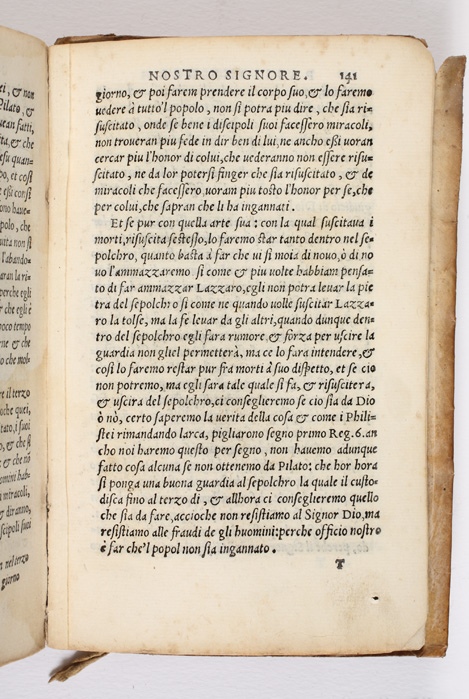 ei, & non
Pilato, &
ean fatti,
ita, & che
esu quan-
po, et così
e essi consi
ono haue-
polo, che
uita non si
l'abando-
aran la ri-
perche egli
poco tempo
rne & che
lo che mol-
re il terzo
oche quei,
tato, i suoi
o, & che si
: & che nō
omini hab-
i miracoli,
& diranno,
scipoli suoi
n nel terzo
giorno
NOSTRO SIGNORE. 141
giorno, & poi farem prendere il corpo suo, & lo faremo
uedere à tutto'l popolo, non si potra piu dire, che sia ri-
suscitato, onde se bene i discipoli suoi facessero miracoli,
non troueran piu fede in dir ben di lui, ne ancho essi uoran
cercar piu l'honor di colui, che uederanno non essere risu-
scitato, ne da lor potersi finger che sia risuscitato, & de
miracoli che facessero, uoram piu tosto l'honor per se, che
per colui, che sapran che li ha ingannati.
Et se pur con quella arte sua: con la qual suscitaua i
morti, risuscita se stesso, lo faremo star tanto dentro nel se-
polchro, quanto basta à far che ui si moia di nouo, ò di no
uo l'ammazzaremo si come & piu uolte habbiam pensa-
to di far ammazzar Lazzaro, egli non potra leuar la pie
tra del sepolchro si come ne quando uolle suscitar Lazza-
ro la tolse, ma la fe leuar da gli altri, quando dunque den-
tro del sepolchro egli fara rumore & forza per uscire la
guardia non gliel permetterà, ma ce lo fara intendere, &
così lo faremo restar pur fra morti à suo dispetto, et se cio
non potremo, ma egli sara tale quale si fa, & risuscitera,
& uscira del sepolchro, ci conseglieremo se cio sia da Dio
ò nò, certo saperemo la uerita della cosa & come i Phili-
stei rimandando larca, pigliarono segno primo Reg. 6. an
cho noi haremo questo per segno, non hauemo adunque
fatto cosa alcuna se non ottenemo da Pilato: che hor hora
si ponga una buona guardia al sepolchro la quale il custo-
disca fino al terzo di, & allhora ci conseglieremo quello
che sia da fare, accioche non resistiamo al Signor Dio, ma
resistiamo alle fraudi de gli huomini: perche officio nostro
è far che'l popol non sia ingannato.
T